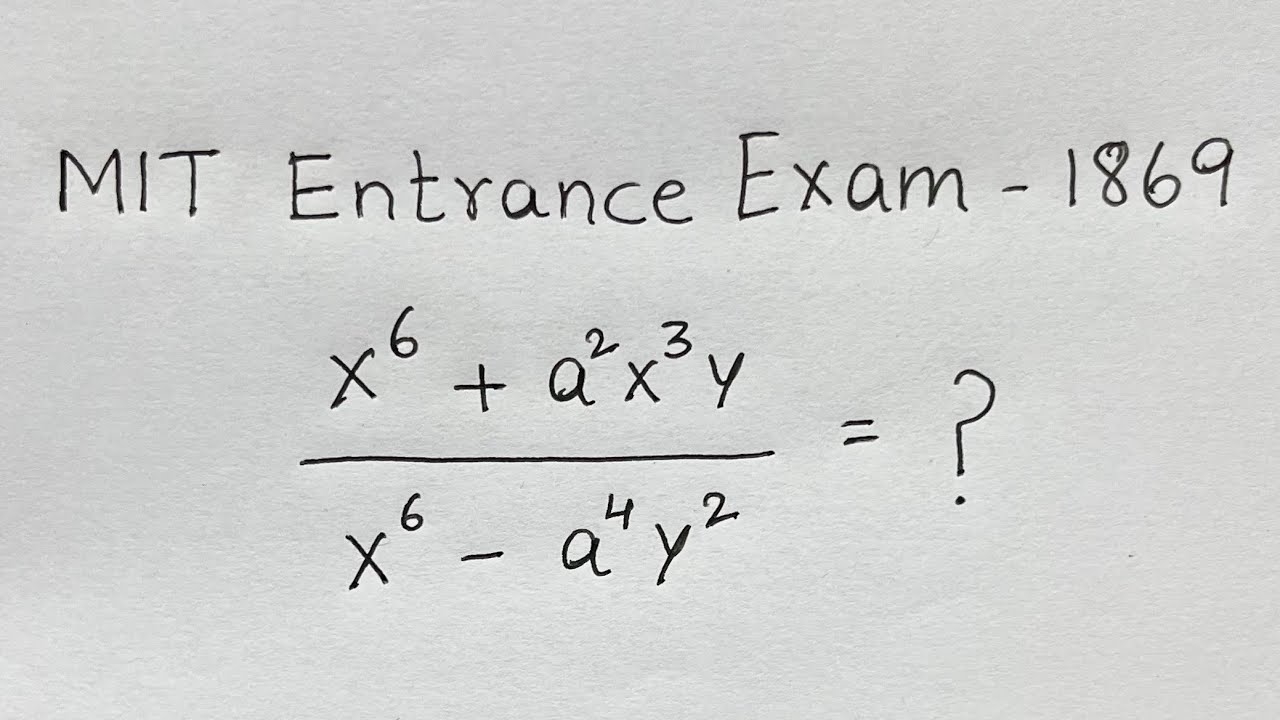 MIT Entrance Exam - 1869
x⁶ + a²x³y
x⁶ - a⁴y²
= ?